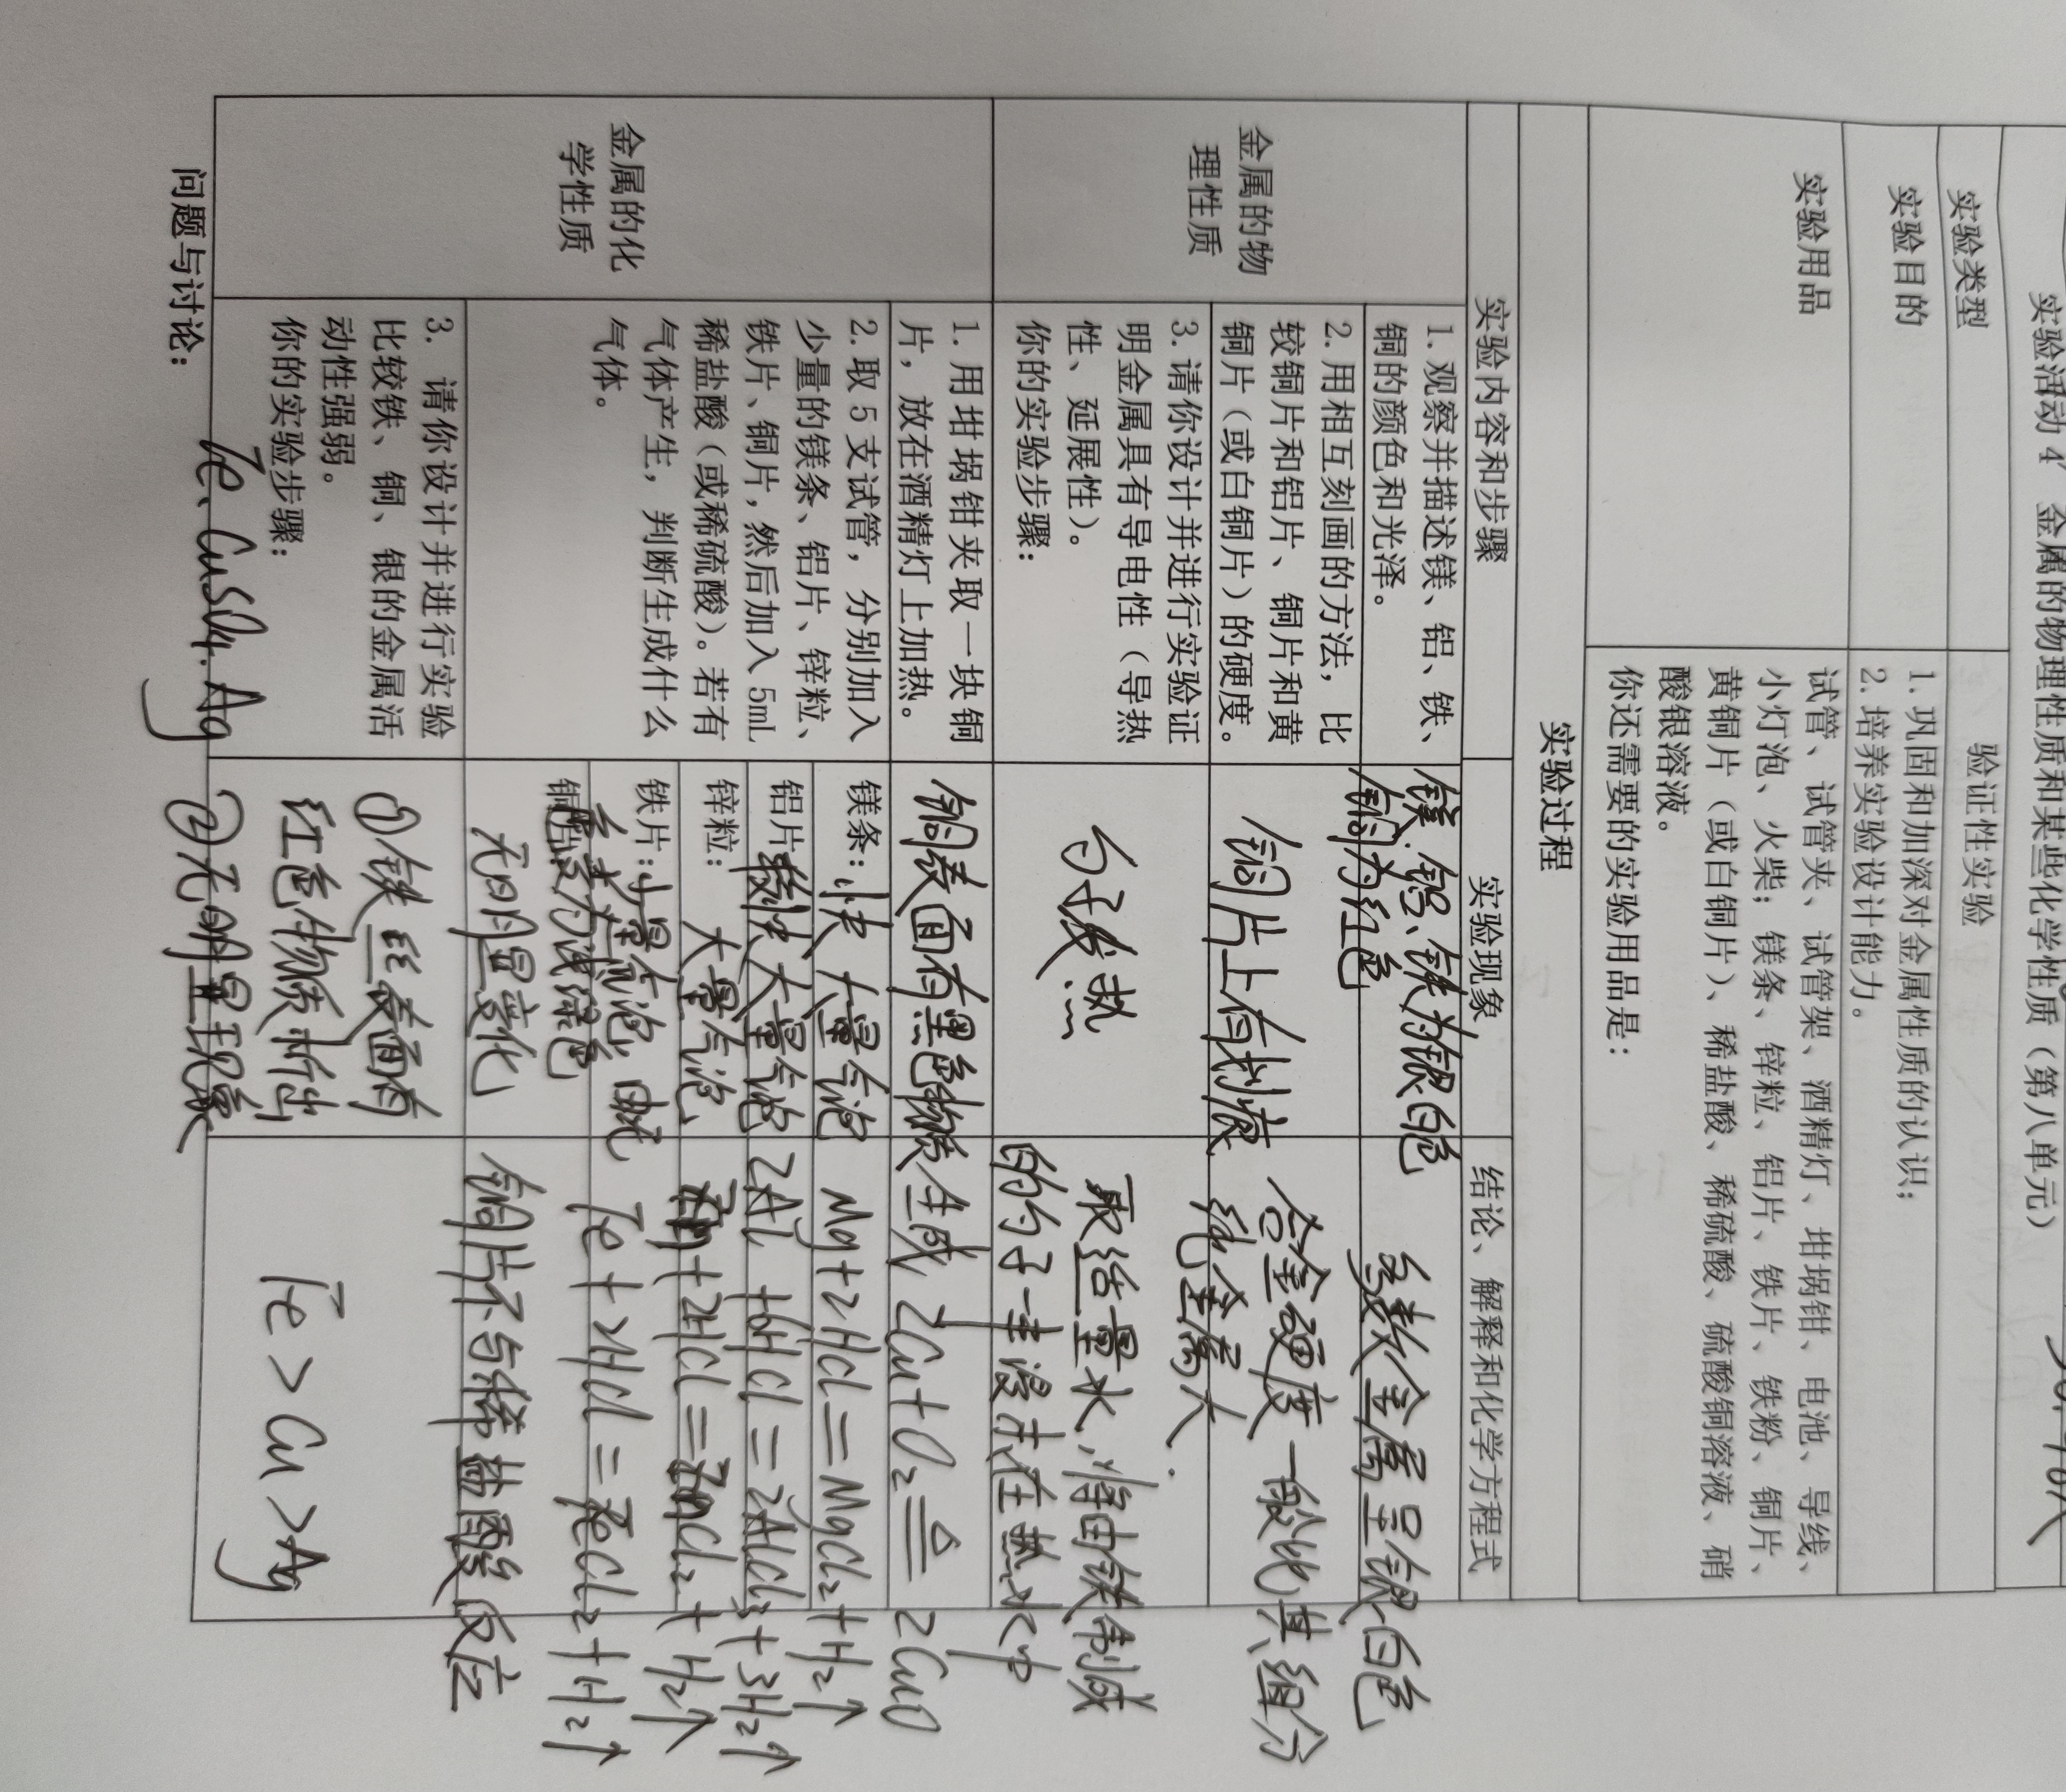 实验活动 4 金属的物理性质和某些化学性质（第八单元）
实验类型
验证性实验
实验目的
1. 巩固和加深对金属性质的认识；
2. 培养实验设计能力。
实验用品
试管、试管夹、试管架、酒精灯、坩埚钳、电池、导线、
小灯泡、火柴；镁条、锌粒、铝片、铁片、铁粉、铜片、
黄铜片（或白铜片）、稀盐酸、稀硫酸、硫酸铜溶液、硝
酸银溶液。
你还需要的实验用品是：
实验过程
实验内容和步骤
实验现象
结论、解释和化学方程式
金属的物
理性质
1. 观察并描述镁、铝、铁、
铜的颜色和光泽。
镁、铝、铁为银白色
铜为红色
多数金属呈银白色
2. 用相互刻画的方法，比
较铜片和铝片、铜片和黄
铜片（或白铜片）的硬度。
铜片上有划痕
合金硬度一般比其组分
纯金属大
3. 请你设计并进行实验证
明金属具有导电性（导热
性、延展性）。
你的实验步骤：
勺子发热
取适量水，将由铁制成
的勺子一半浸没在热水中
金属的化
学性质
1. 用坩埚钳夹取一块铜
片，放在酒精灯上加热。
铜表面有黑色物质生成
2Cu+O₂≜2CuO
2. 取 5 支试管，分别加入
少量的镁条、铝片、锌粒、
铁片、铜片，然后加入 5mL
稀盐酸（或稀硫酸）。若有
气体产生，判断生成什么
气体。
镁条：快 大量气泡
Mg+2HCl=MgCl₂+H₂↑
铝片：较快大量气泡
2Al+6HCl=2AlCl₃+3H₂↑
锌粒：大量气泡
Zn+2HCl=ZnCl₂+H₂↑
铁片：少量气泡，由无
色变为浅绿色
Fe+2HCl=FeCl₂+H₂↑
铜片：
无明显变化
铜片不与稀盐酸反应
3. 请你设计并进行实验
比较铁、铜、银的金属活
动性强弱。
你的实验步骤：
Fe、CuSO₄、Ag
①铁丝表面有
红色物质析出
②无明显现象
Fe>Cu>Ag
问题与讨论：